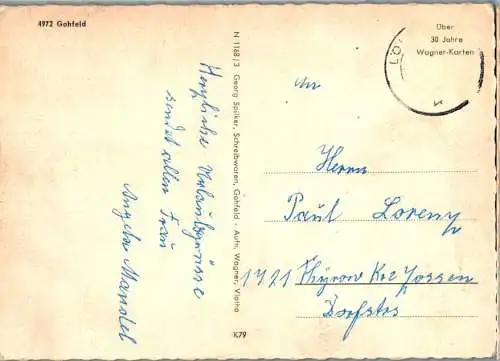 4972 Gohfeld
Über
30 Jahre
Wagner-Karten
LÖ
N 1168/3 Georg Spilker, Schreibwaren, Gohfeld - Auth. Wagner, Vlotho
K79
Herzliche Urlaubsgrüsse
sendet allen Frau
Angela Mandel
An
Herrn
Paul Lorenz
1721 Thyrow Kre Zossen
Dorfstrs